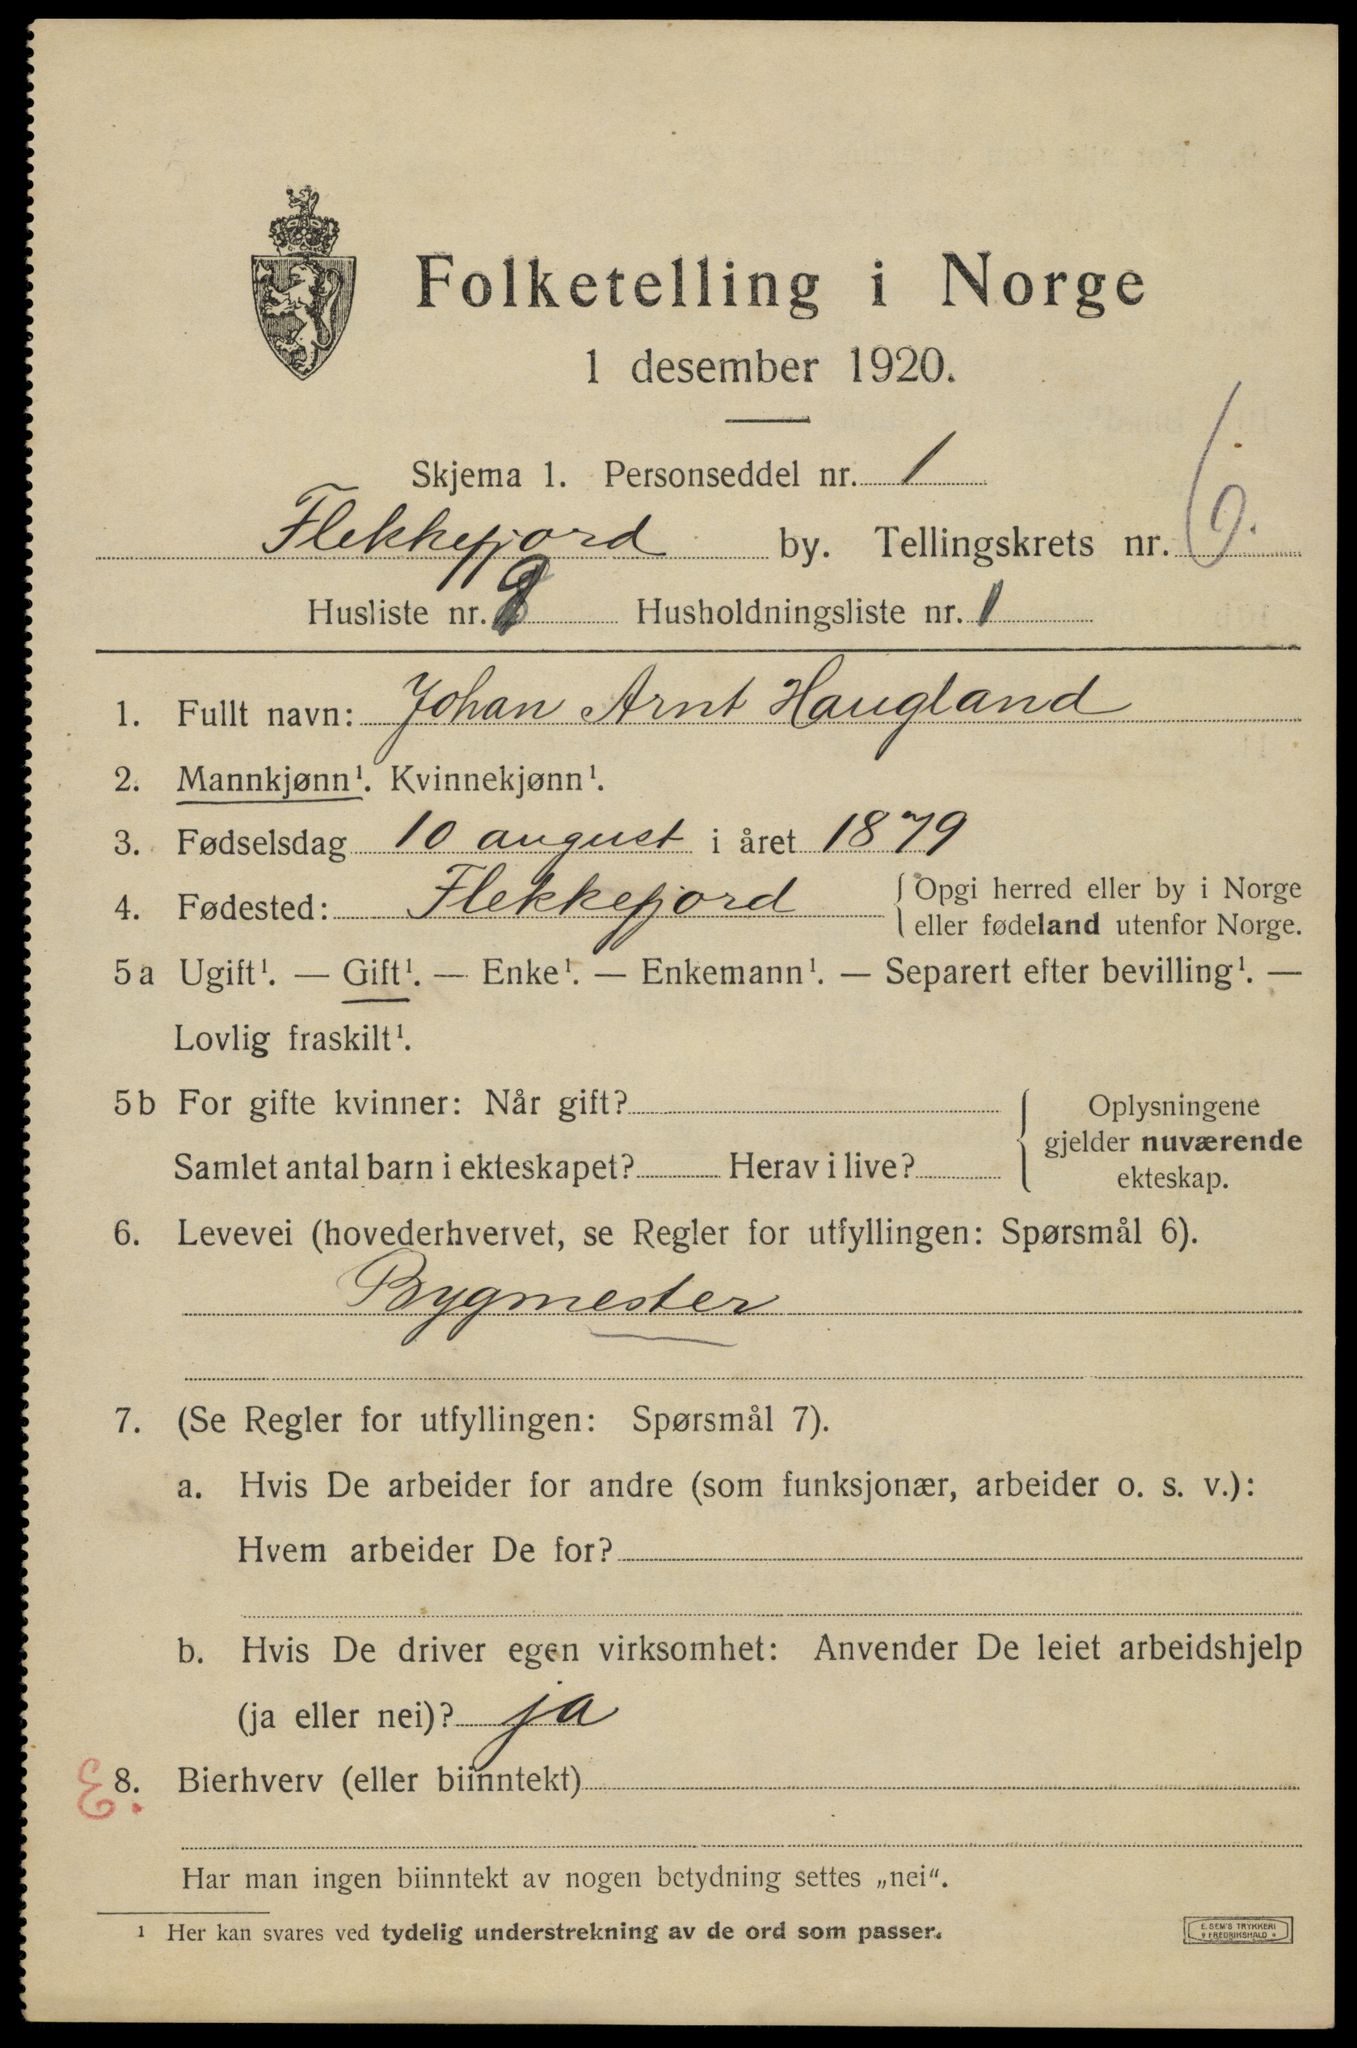 Folketelling i Norge
1 desember 1920.
Skjema 1. Personseddel nr. 1
Flekkefjord by. Tellingskrets nr. 6.
Husliste nr. Husholdningsliste nr. 1
1. Fullt navn: Johan Arnt Haugland
2. Mannkjønn¹. Kvinnekjønn¹.
3. Fødselsdag 10 august i året 1879
4. Fødested: Flekkefjord { Opgi herred eller by i Norge
eller fødeland utenfor Norge.
5a Ugift¹. — Gift¹. — Enke¹. — Enkemann¹. — Separert efter bevilling¹. —
Lovlig fraskilt¹.
5b For gifte kvinner: Når gift?
Samlet antal barn i ekteskapet? Herav i live?
{ Oplysningene
gjelder nuværende
ekteskap.
6. Levevei (hovederhvervet, se Regler for utfyllingen: Spørsmål 6).
Bygmester
7. (Se Regler for utfyllingen: Spørsmål 7).
a. Hvis De arbeider for andre (som funksjonær, arbeider o. s. v.):
Hvem arbeider De for?
b. Hvis De driver egen virksomhet: Anvender De leiet arbeidshjelp
(ja eller nei)? ja
E. 8. Bierhverv (eller biinntekt)
Har man ingen biinntekt av nogen betydning settes „nei“.
¹ Her kan svares ved tydelig understrekning av de ord som passer.
E. SEM'S TRYKKERI
FREDRIKSHALD